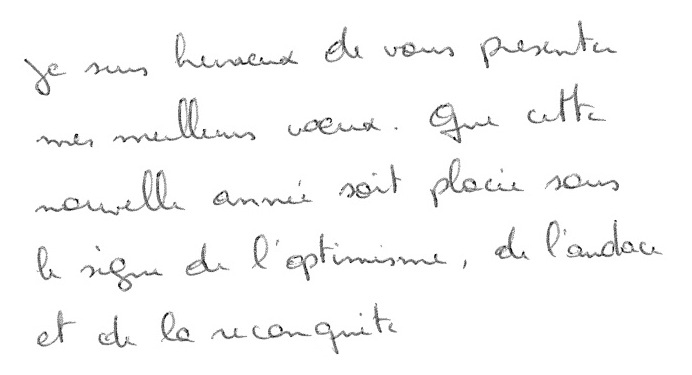 Je suis heureux de vous présenter
mes meilleurs vœux. Que cette
nouvelle année soit placée sous
le signe de l'optimisme, de l'audace
et de la reconquête